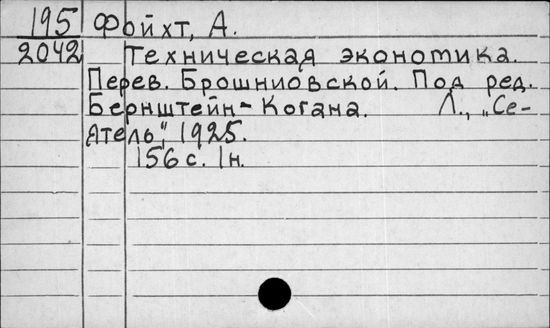 195 Фойхт, А.
2042 Техническая экономика.
Перев. Брошниовской. Под ред.
Бернштейн-Когана. Л., „Се-
ятель", 1925.
156 с. 1н.